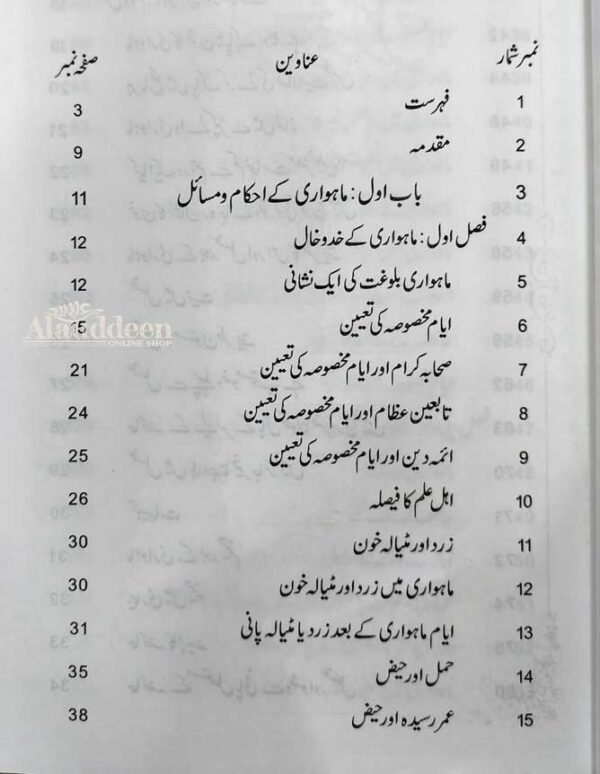 نمبر شمار عناوین صفحہ نمبر
1 فہرست 3
2 مقدمہ 9
3 باب اول: ماہواری کے احکام و مسائل 11
4 فصل اول: ماہواری کے خدوخال 12
5 ماہواری بلوغت کی ایک نشانی 12
6 ایام مخصوصہ کی تعیین 15
7 صحابہ کرام اور ایام مخصوصہ کی تعیین 21
8 تابعین عظام اور ایام مخصوصہ کی تعیین 24
9 ائمہ دین اور ایام مخصوصہ کی تعیین 25
10 اہل علم کا فیصلہ 26
11 زرد اور مٹیالہ خون 30
12 ماہواری میں زرد اور مٹیالہ خون 30
13 ایام ماہواری کے بعد زرد یا مٹیالہ پانی 31
14 حمل اور حیض 35
15 عمر رسیدہ اور حیض 38
Alauddeen
ONLINE SHOP